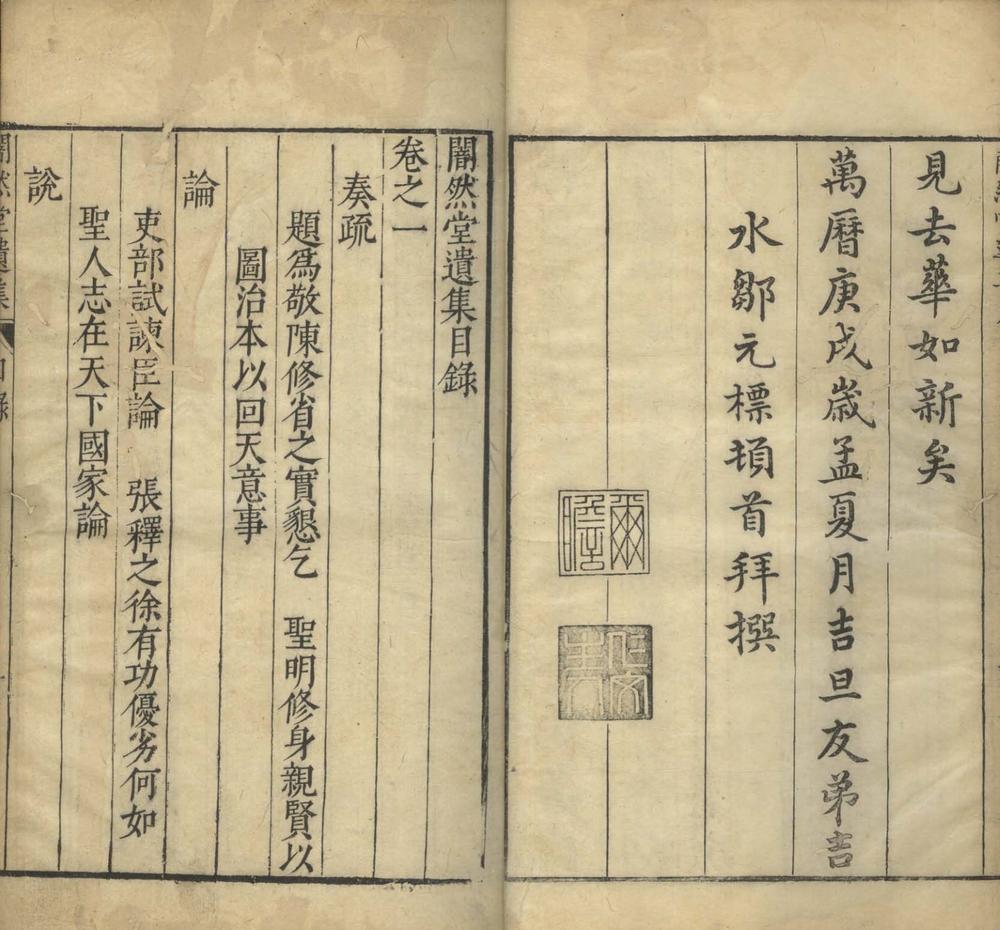 見去華如新矣
萬曆庚戌歲孟夏月吉旦友弟吉
水鄒元標頓首拜撰
爾瞻
闇然堂遺集目錄
卷之一
奏疏
題爲敬陳修省之實懇乞 聖明修身親賢以
圖治本以回天意事
論
吏部試諫臣論 張釋之徐有功優劣何如
聖人志在天下國家論
說
闇然堂遺集 目錄